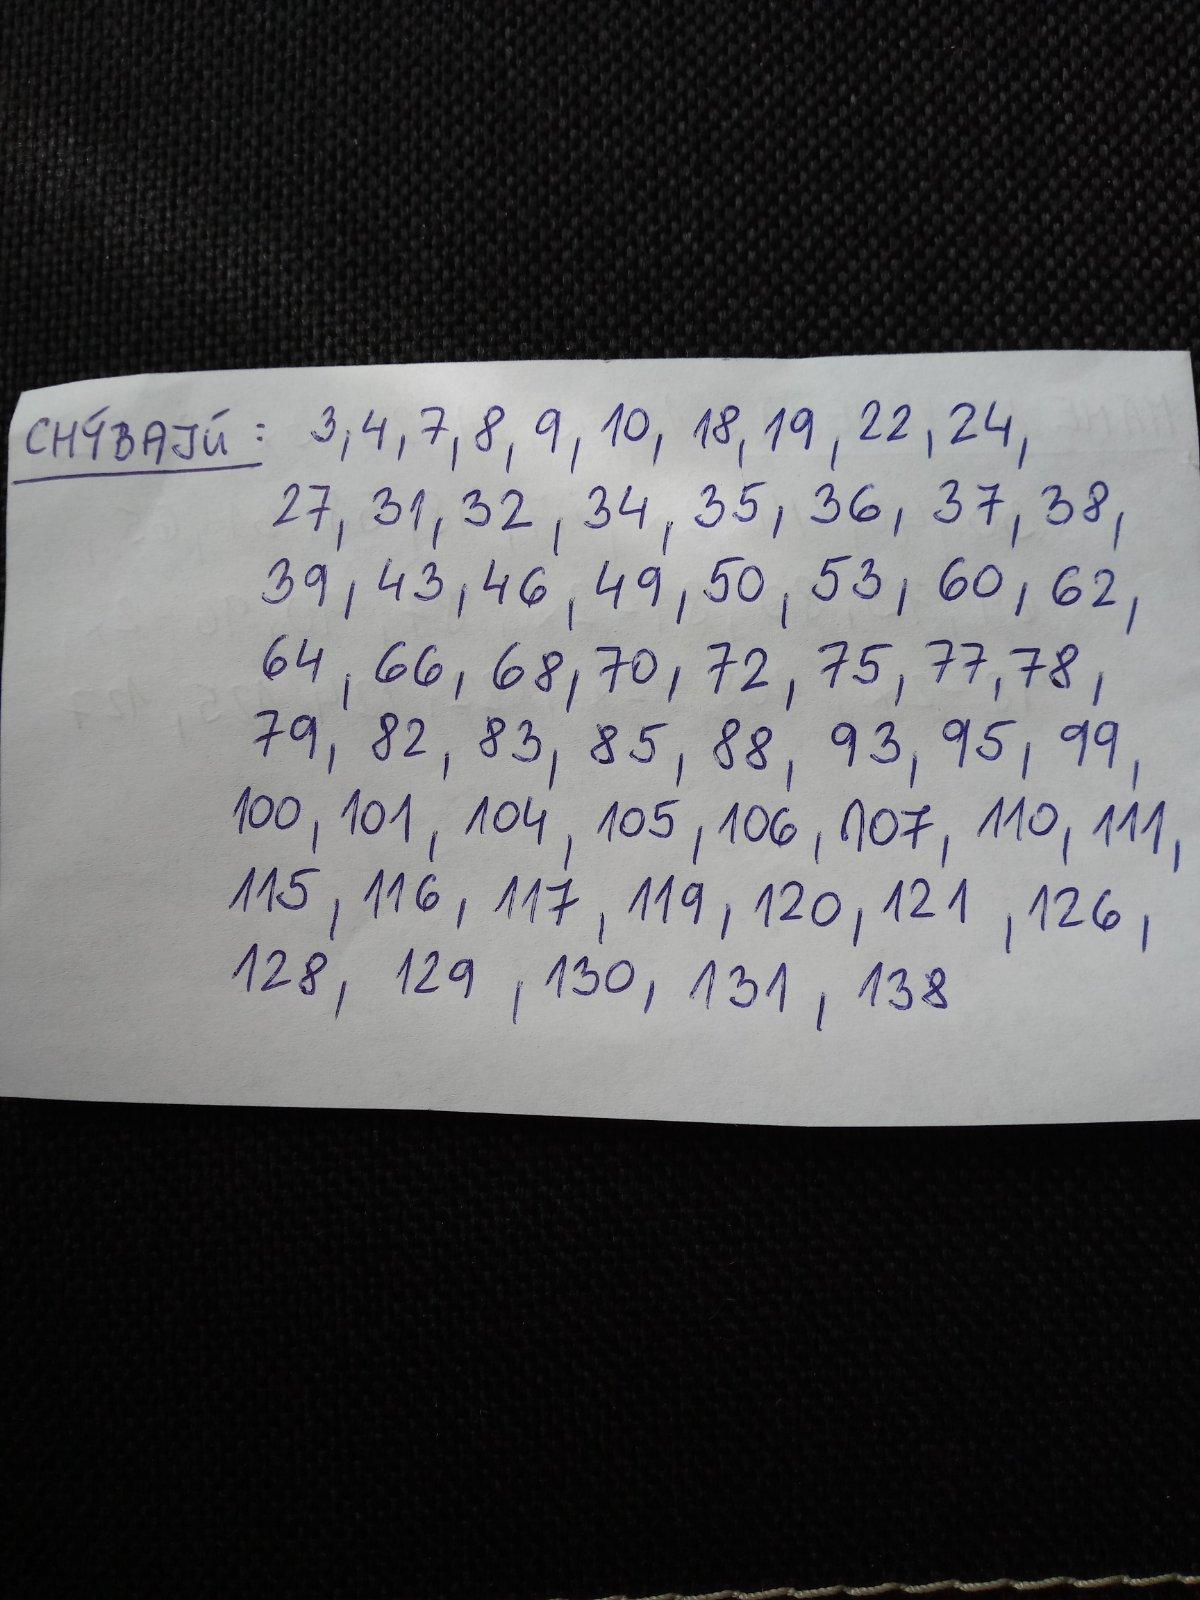 CHÝBAJÚ: 3, 4, 7, 8, 9, 10, 18, 19, 22, 24,
27, 31, 32, 34, 35, 36, 37, 38,
39, 43, 46, 49, 50, 53, 60, 62,
64, 66, 68, 70, 72, 75, 77, 78,
79, 82, 83, 85, 88, 93, 95, 99,
100, 101, 104, 105, 106, 107, 110, 111,
115, 116, 117, 119, 120, 121, 126,
128, 129, 130, 131, 138